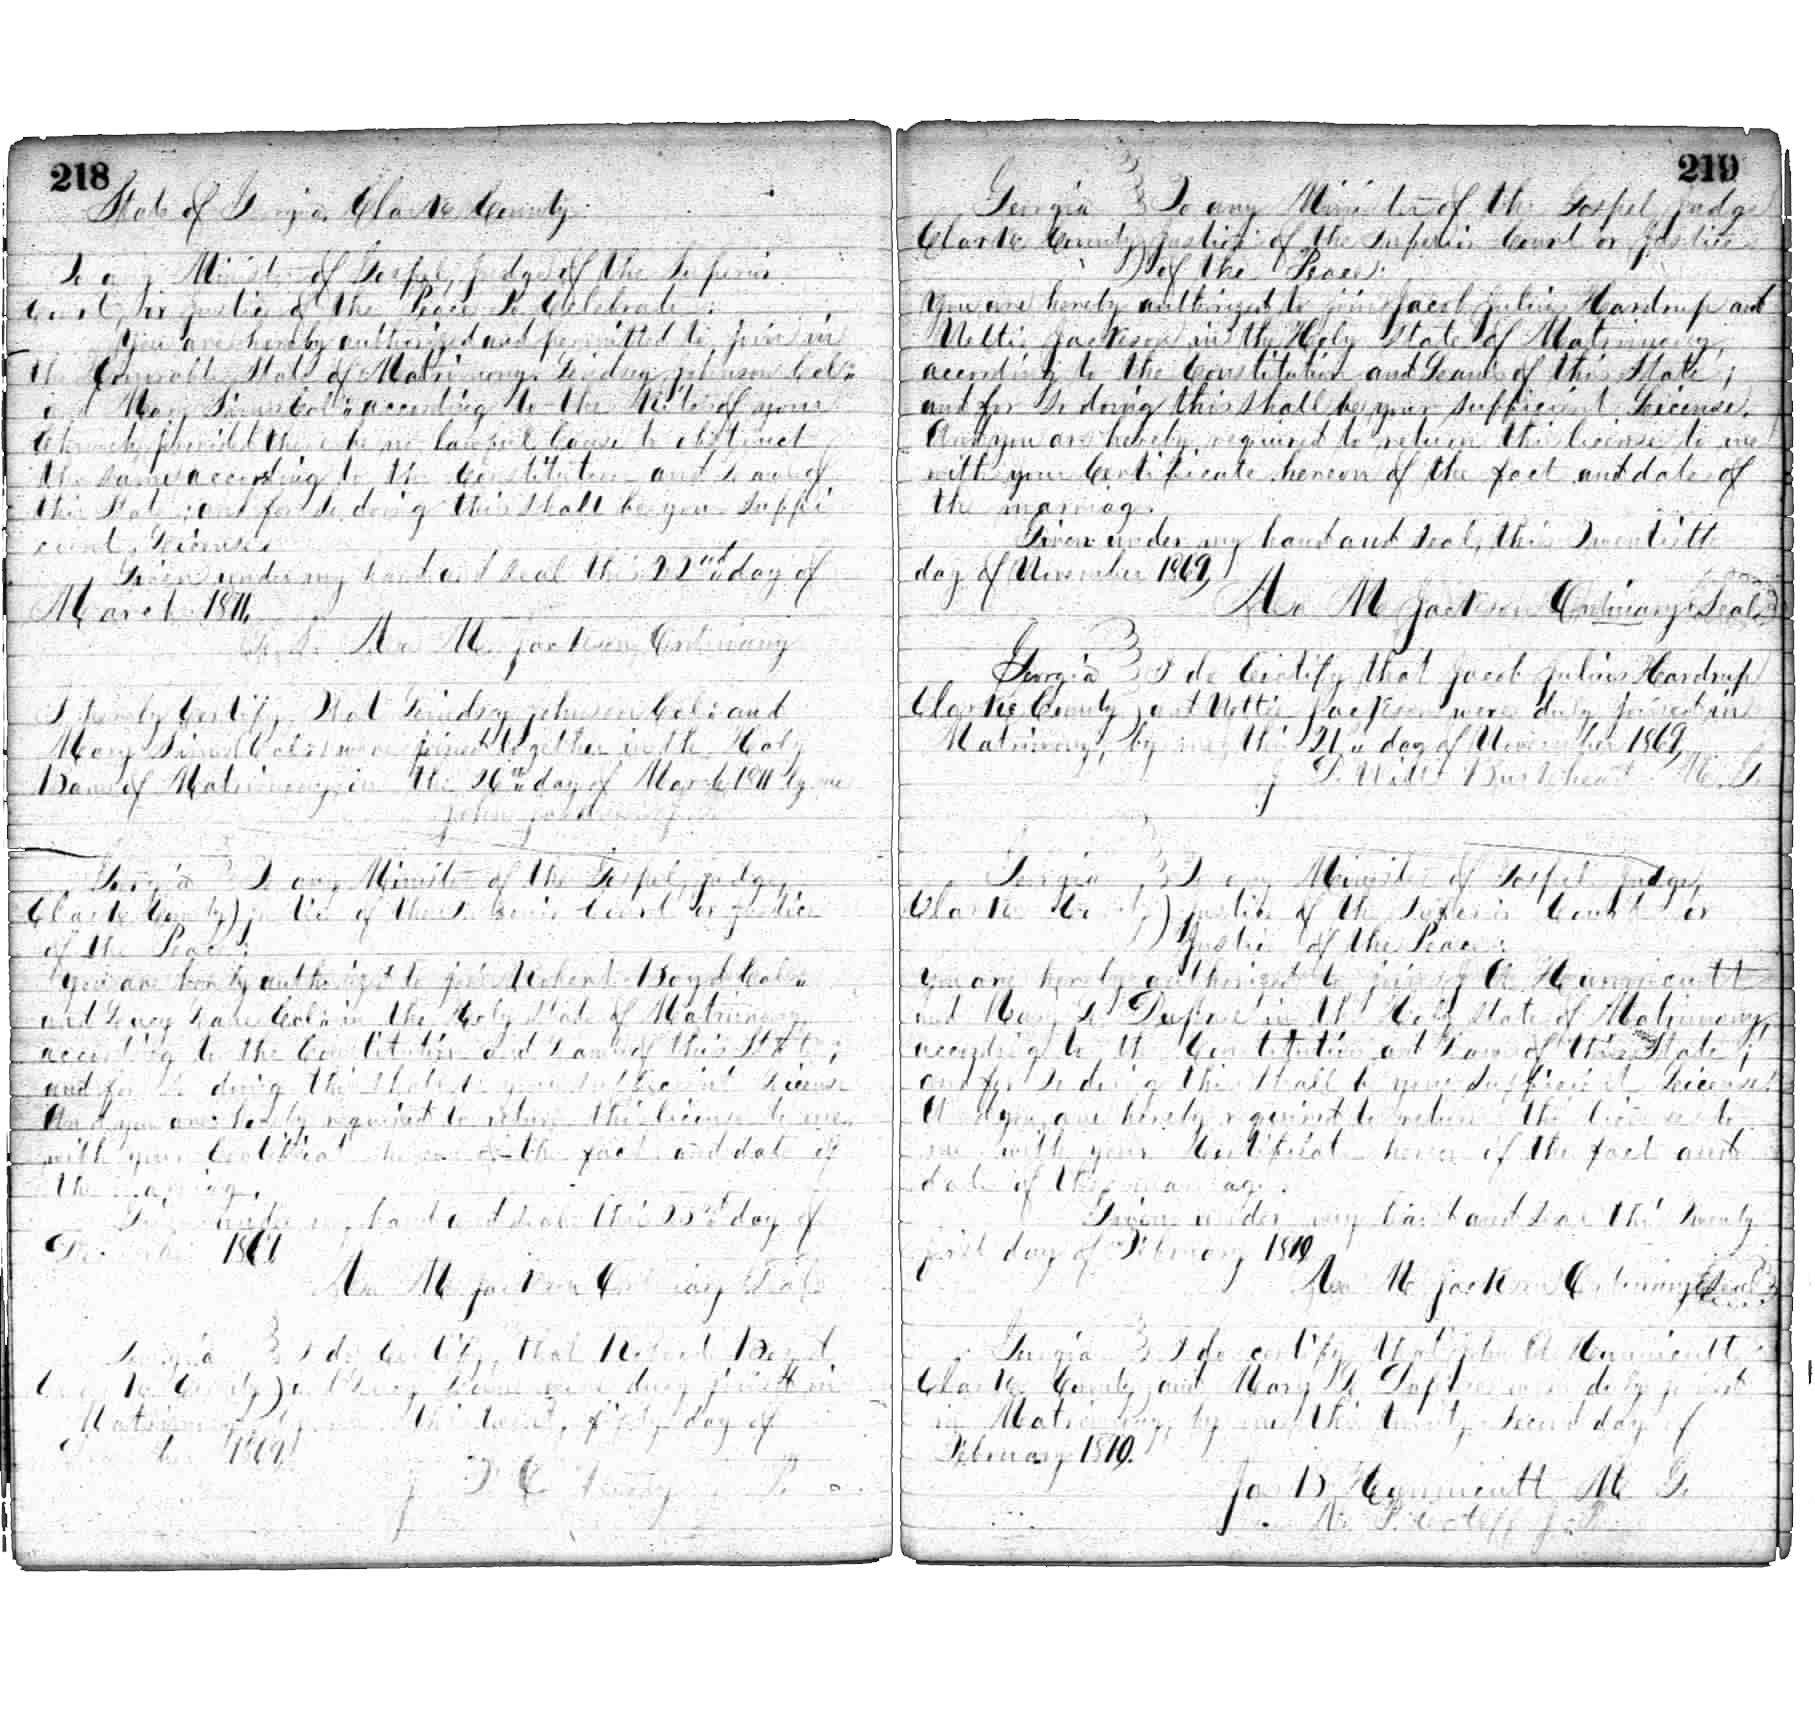 218
State of Georgia, Clarke County.
To any Minister of Gospel, Judge of the Superior
Court, or Justice of the Peace To Celebrate:
You are hereby authorized and permitted to join in
the Honorable State of Matrimony Lindsey Johnson Col:
and Mary Sims Col: according to the Rites of your
Church, provided there be no lawful Cause to obstruct
the same according to the Constitution and Laws of
this State; and for so doing this shall be your suffi
cient License.
Given under my hand and seal this 22nd day of
March 1871.
L. S. Asa M. Jackson Ordinary
I hereby Certify That Lindsey Johnson Col: and
Mary Sims Col: were joined together in the Holy
Bans of Matrimony in the 26th day of March 1871 by me
John
Georgia To any Minister of the Gospel, Judge,
Clarke County) Justice of the Superior Court or Justice
of the Peace:
You are hereby authorized to join Robert Boyd Col:
and Lucy Col: in the Holy State of Matrimony
according to the Constitution and Laws of this State;
and for so doing this shall be your sufficient License
And you are hereby required to return this license to me,
with your Certificate hereon of the fact and date of
the marriage.
Given under my hand and seal this 23rd day of
186
Asa M. Jackson Ordinary Seal
Georgia I do Certify, that Robert Boyd
Clarke County) and Lucy were duly joined in
Matrimony by me this day of
186
J
219
Georgia To any Minister of the Gospel, Judge
Clarke County, Justice of the Superior Court or Justice
) of the Peace:
You are hereby authorized to join Jacob Julius Hardrup and
Nettie Jackson in the Holy State of Matrimony,
according to the Constitution and Laws of this State;
and for so doing this shall be your sufficient License.
And you are hereby required to return this license to me
with your Certificate hereon of the fact and date of
the marriage.
Given under my hand and seal, this Twentieth
day of November 1869,
Asa M Jackson Ordinary Seal
Georgia I do Certify that Jacob Julius Hardrup
Clarke County) and Nettie Jackson were duly joined in
Matrimony, by me, this 21st day of November 1869,
J DeWitt Burkhead M. G.
Georgia To any Minister of Gospel Judge,
Clarke County) Justice of the Superior Court or
) Justice of the Peace:
You are hereby authorized to join J A Hunnicutt
and Mary L Dupree in the Holy State of Matrimony,
according to the Constitution and Laws of this State;
and for so doing this shall be your sufficient License.
And you are hereby required to return this license to
me with your Certificate hereon of the fact and
date of the marriage.
Given under my hand and seal this Twenty
first day of February 1870
Asa M Jackson Ordinary Seal
Georgia I do certify that John A Hunnicutt
Clarke County and Mary L Dupree were duly joined
in Matrimony, by me, this twenty second day of
February 1870.
Jas B Hunnicutt M G.